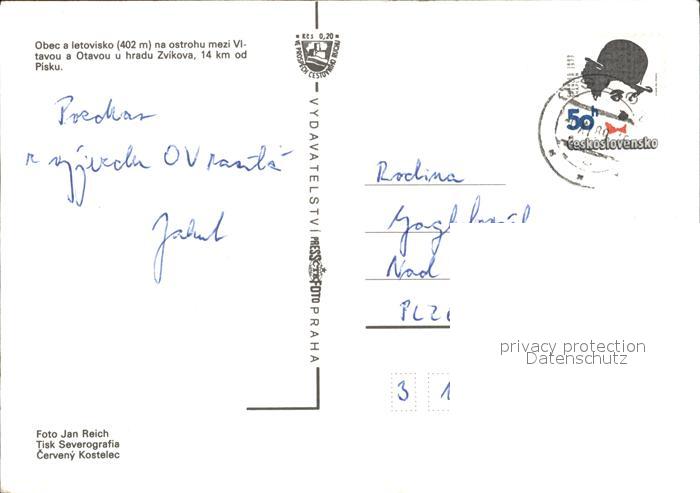 Obec a letovisko (402 m) na ostrohu mezi Vl-
tavou a Otavou u hradu Zvíkova, 14 km od
Písku.
Kčs 0,20
VE PROSPĚCH CESTOVNÍHO RUCHU
50h
Československo
Pozdrav
z výjezdu OV zasílá
Jakub
VYDAVATELSTVÍ PRESSFOTO PRAHA
Rodina
Nad
PLZ
3 1
privacy protection
Datenschutz
Foto Jan Reich
Tisk Severografia
Červený Kostelec